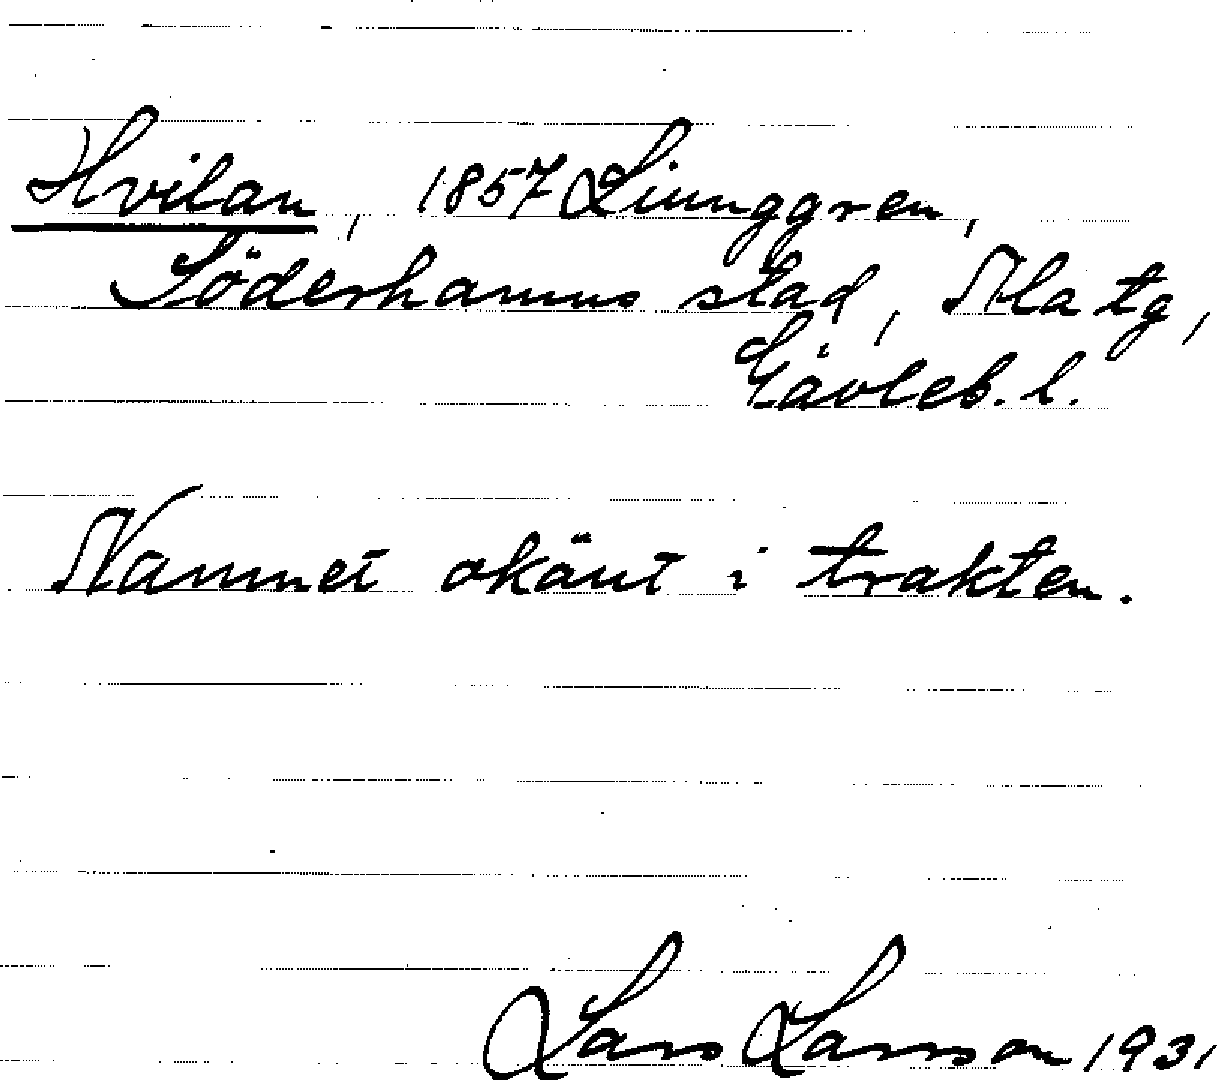 Hvilan, 1857 Liunggren,
Söderhamns stad, Ala tg,
Gävleb. l.
Namnet okänt i trakten.
Lars Larsson 1931